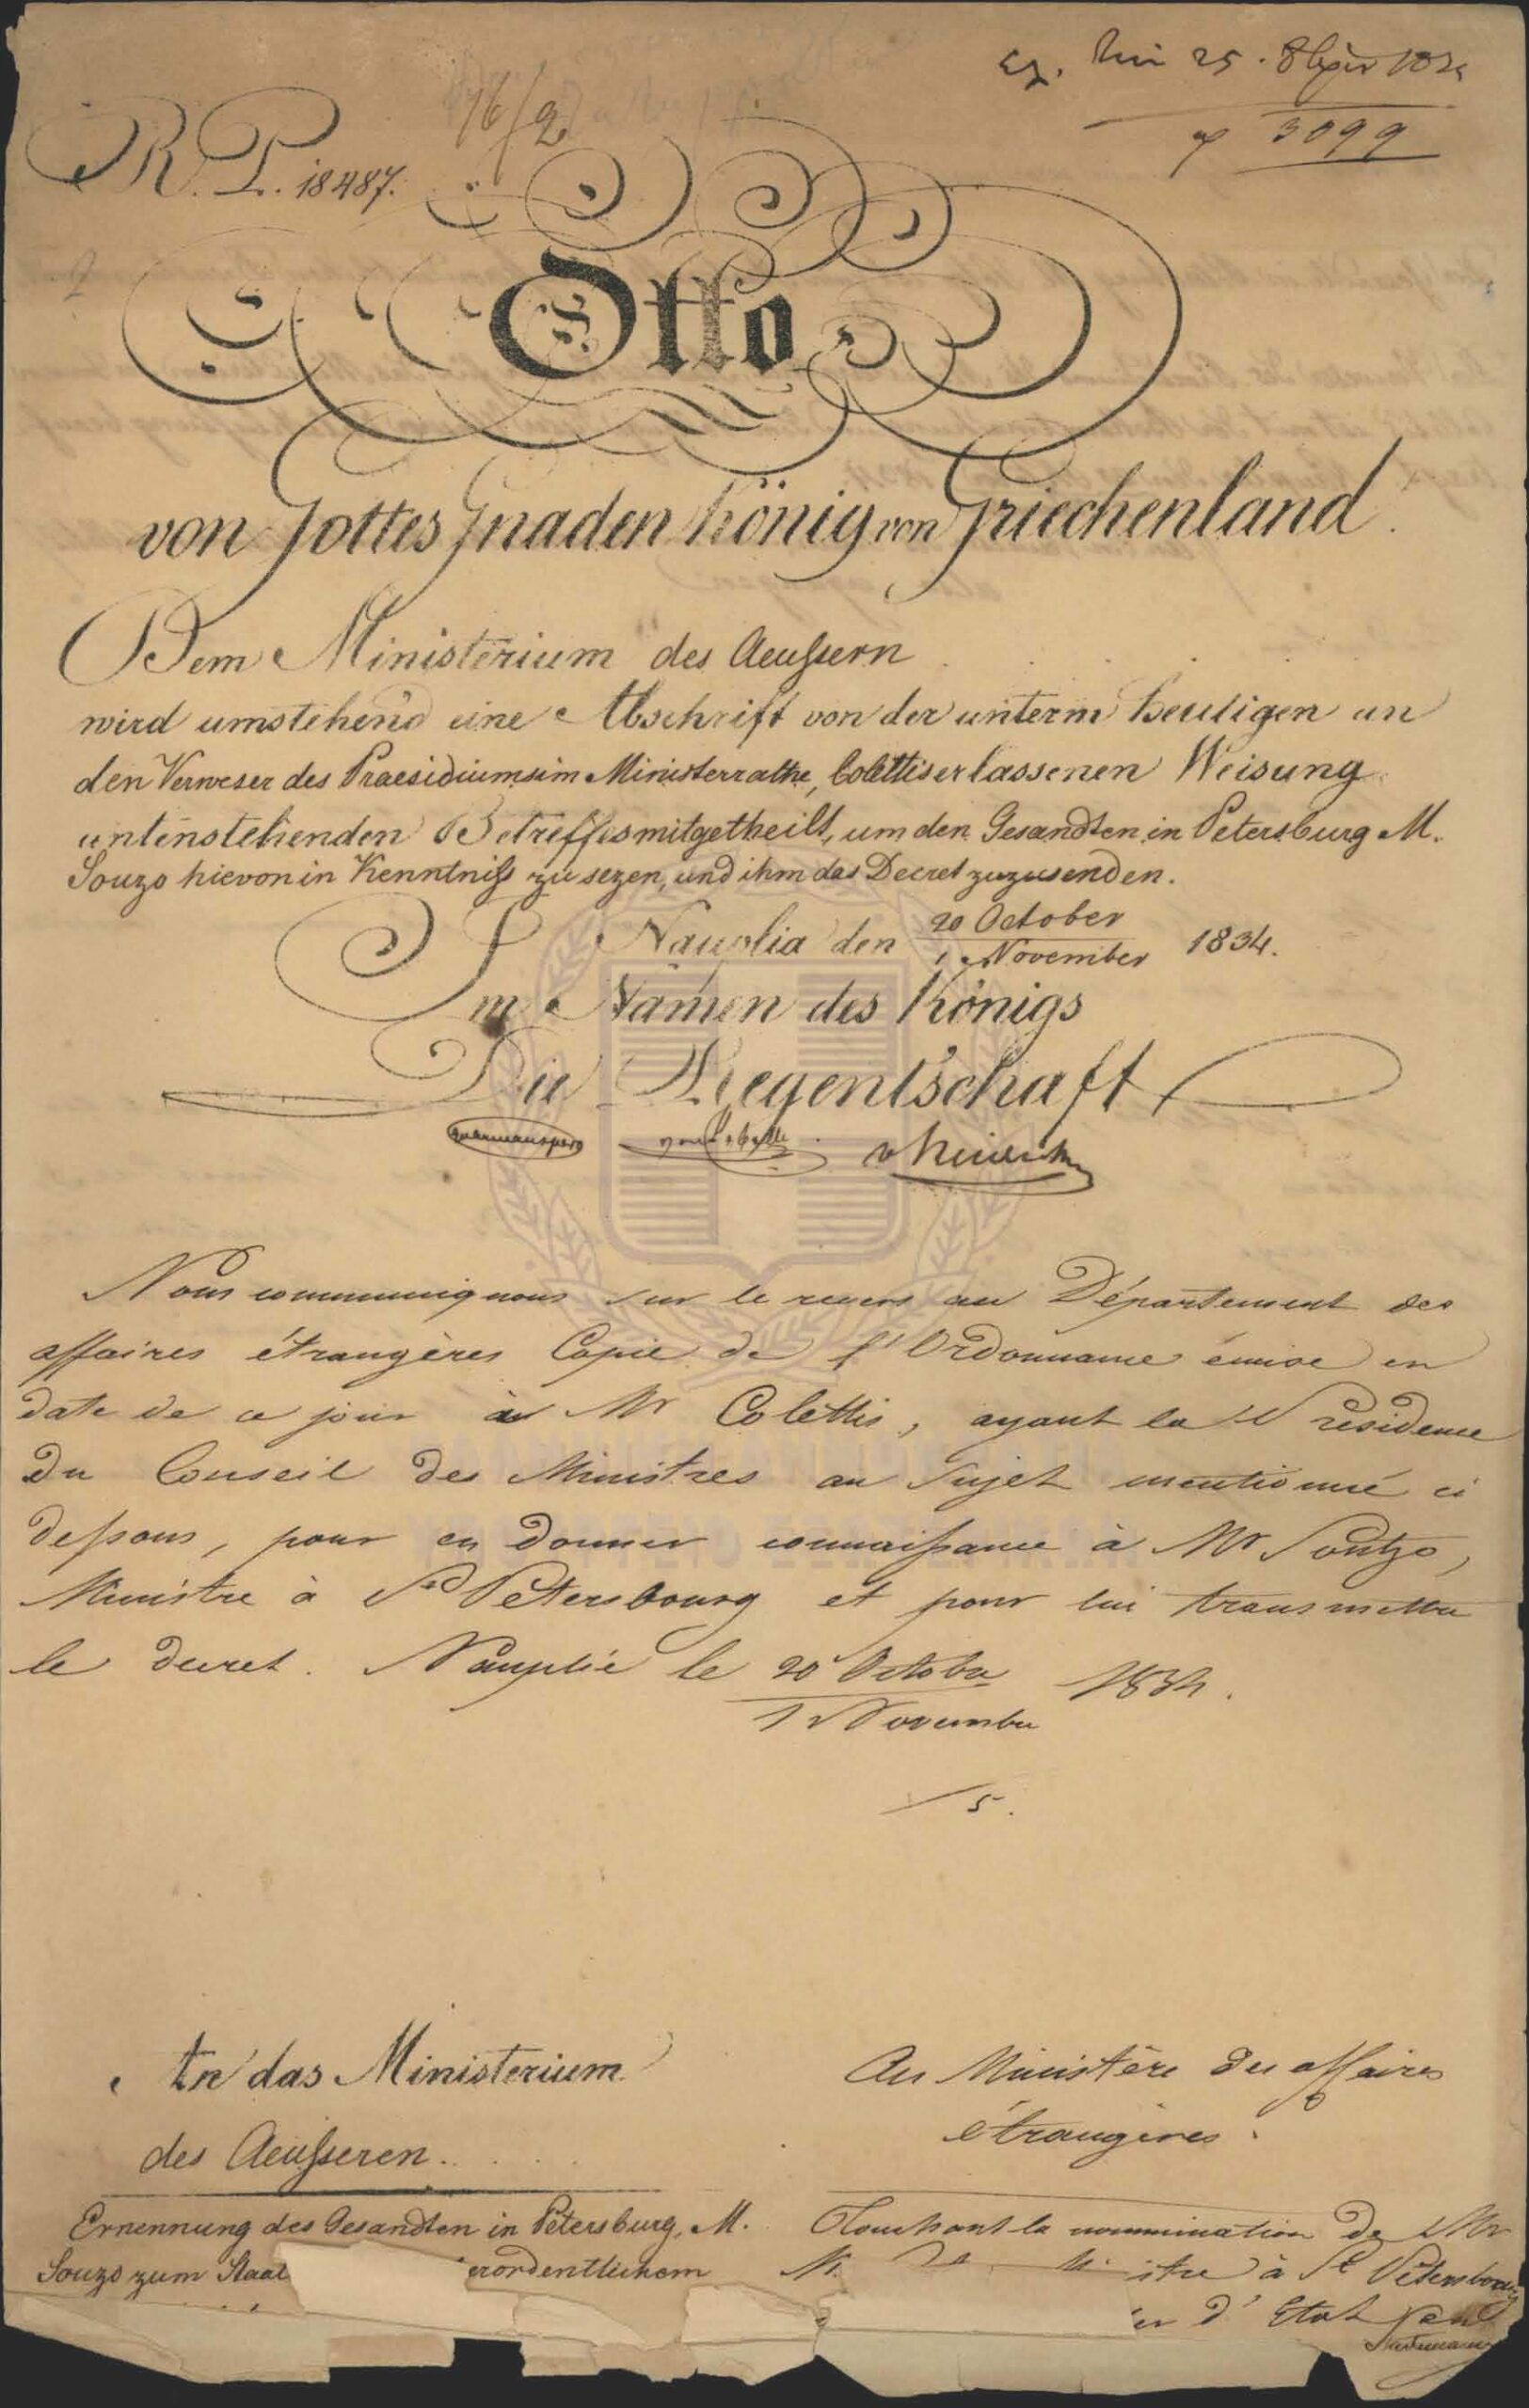 25. 8βρίου 1834
3099
16/2
R. P. 18487.
Otto
von Gottes Gnaden König von Griechenland.
Dem Ministerium des Aeußern
wird umstehend eine Abschrift von der unterm Heutigen an
den Verweser des Praesidiums im Ministerrathe, Colettis erlassenen Weisung
untenstehenden Betreffes mitgetheilt, um den Gesandten in Petersburg M.
Souzo hievon in Kenntniß zu sezen, und ihm das Decret zuzusenden.
Nauplia den 20 October / 1 November 1834.
Im Namen des Königs
Die Regentschaft
Nous communiquons sur le revers au Département des
affaires étrangères Copie de l'Ordonnance émise en
date de ce jour à Mr Colettis, ayant la Présidence
du Conseil des Ministres au sujet mentionné ci
dessous, pour en donner connaissance à Mr Soutzo,
Ministre à St Petersbourg et pour lui transmettre
le decret. Nauplie le 20 Octobre / 1 Novembre 1834.
An das Ministerium
des Aeußeren.
Au Ministère des affaires
étrangères.
Ernennung des Gesandten in Petersburg, M.
Souzo zum Staat erordentlichem
Touchant la nommination de Mr
à St Petersbourg
d'Etat